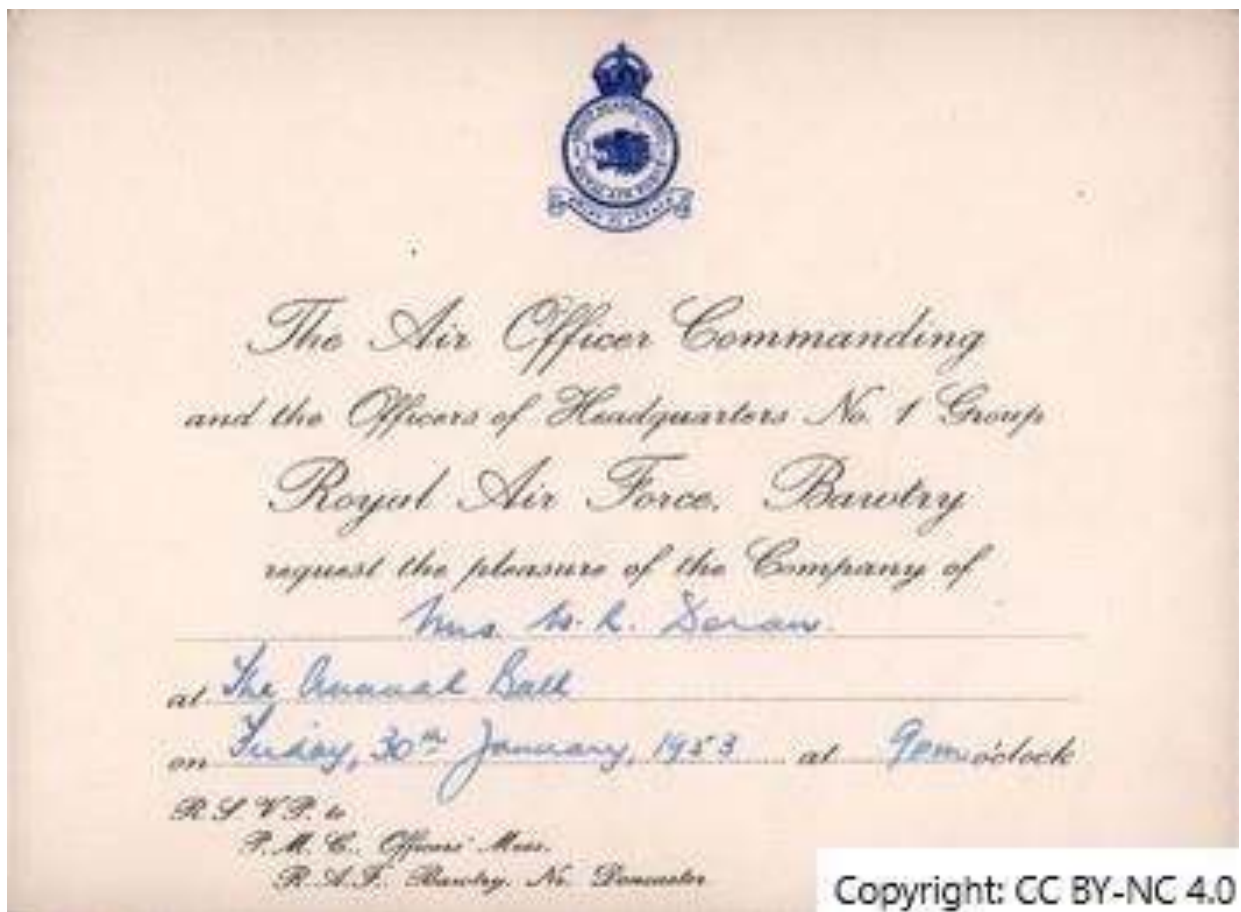 The Air Officer Commanding
and the Officers of Headquarters No. 1 Group
Royal Air Force, Bawtry
request the pleasure of the Company of
Mrs.
at The Annual Ball
on Friday, 30th January, 1953 at 9pm o'clock
R.S.V.P. to
P.M.C. Officers' Mess.
R.A.F. Bawtry. Nr. Doncaster
Copyright: CC BY-NC 4.0